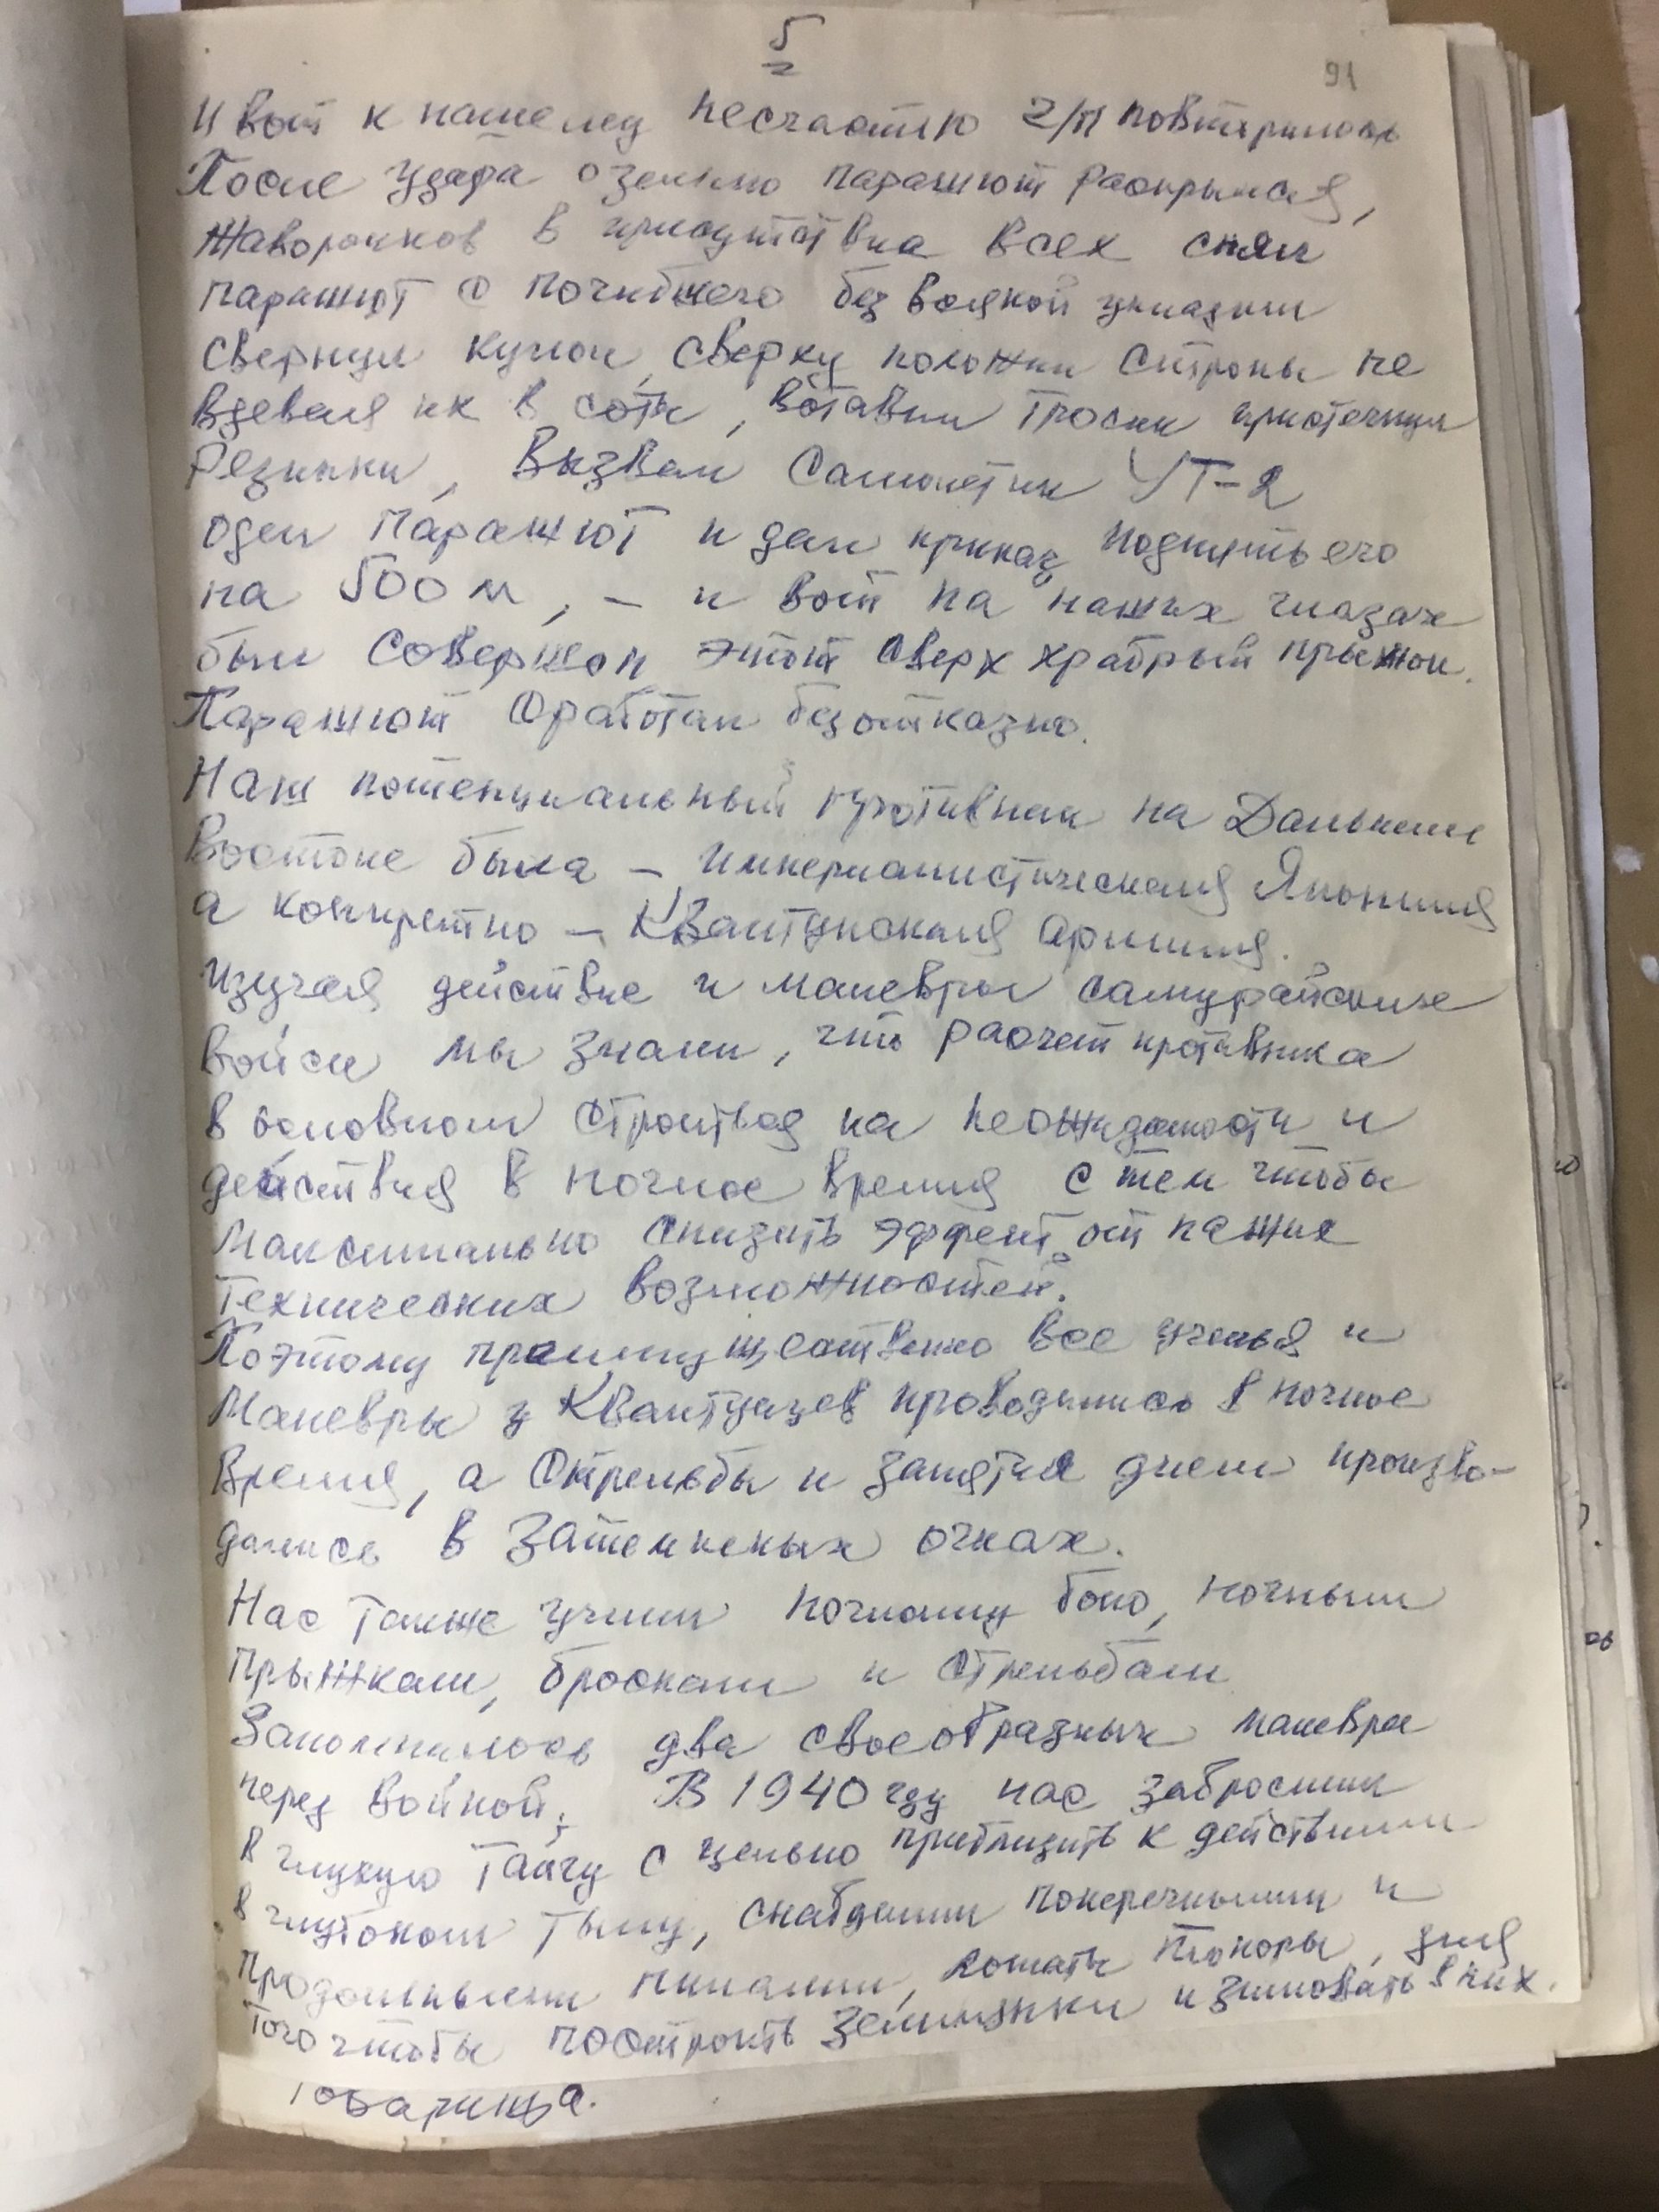 5
91
И вот к нашему несчастью ч/п повтарилось
После удара о землю парашют раскрылся,
Жаворонков в присутствии всех снял
парашют с погибшего без всякой укладки
свернул купол, сверху положил стропы не
вдевая их в соты, вставил троски пристегнул
Резинки, Вызвал самолетик УТ-2
одел парашют и дал приказ поднять его
на 500 м, – и вот на наших глазах
был совершон этот сверх храбрый прыжок.
Парашют сработал безотказно.
Наш потенциальный противник на Дальнем
Востоке была – Империалистическая Япония
а конкретно – Квантунская армия.
Изучая действие и маневры самурайских
войск мы знали, что расчет противника
в основном строится на неожиданости и
действия в ночное время с тем чтобы
Максимально снизить эффект от наших
технических возможностей.
Поэтому преимущественно все ученья и
Маневры у Квантунцев проводились в ночное
время, а стрельбы и занятия днем произво-
дились в затемненых очках.
Нас также учили ночному бою, ночным
прыжкам, броскам и стрельбам
Запомнилось два своеобразных маневра
перед войной. В 1940 году нас забросили
в глухую тайгу с целью приблизить к действиям
в глубоком тылу, снабдили поперечными и
продольными пилами, топоры, для
того чтобы построить землянки и зимовать в них.
товарища.